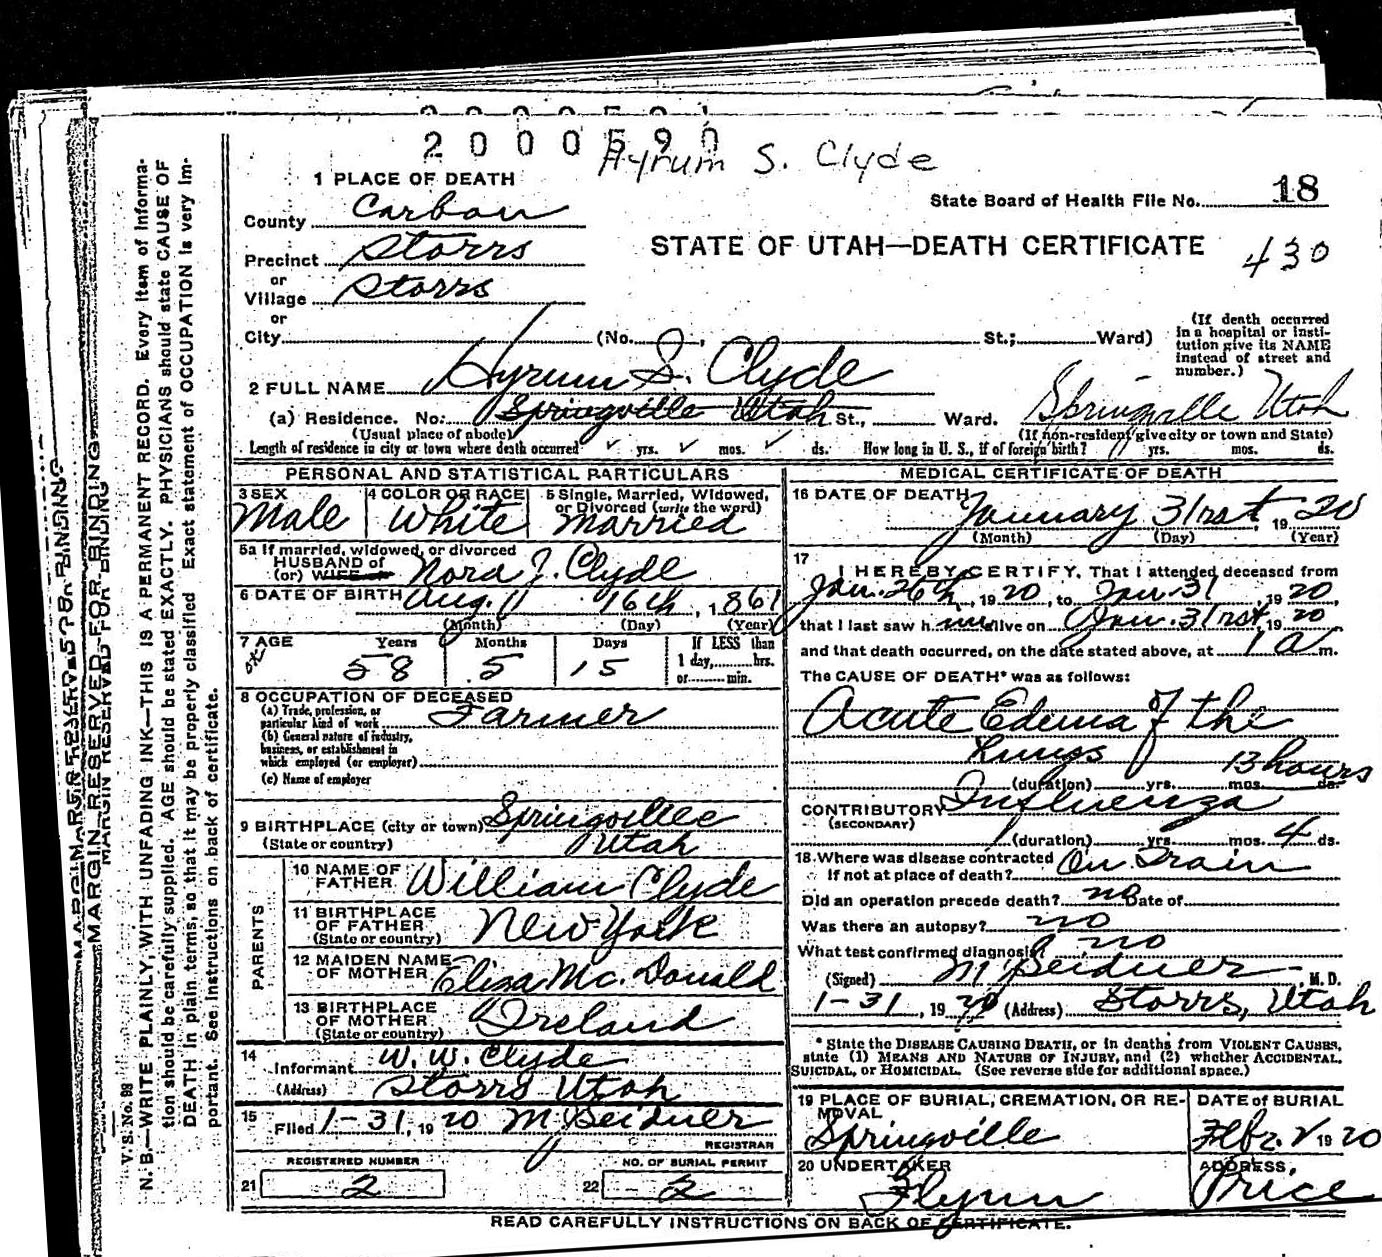 2000590
Hyrum S. Clyde
1 PLACE OF DEATH
County Carbon
State Board of Health File No. 18
Precinct Storrs
STATE OF UTAH—DEATH CERTIFICATE
430
or
Village Storrs
or
City (No. , St.; Ward)
(If death occurred in a hospital or insti-
tution give its NAME
instead of street and
number.)
2 FULL NAME Hyrum S. Clyde
(a) Residence. No. Springville Utah St., Ward. Springville Utah
(Usual place of abode) (If non-resident give city or town and State)
Length of residence in city or town where death occurred yrs. mos. ds. How long in U. S., if of foreign birth? yrs. mos. ds.
PERSONAL AND STATISTICAL PARTICULARS
3 SEX Male
4 COLOR OR RACE White
5 Single, Married, Widowed,
or Divorced (write the word)
Married
5a If married, widowed, or divorced
HUSBAND of
(or) WIFE of Nora J. Clyde
6 DATE OF BIRTH Aug. 16th, 1861
(Month) (Day) (Year)
7 AGE Years Months Days If LESS than
58 5 15 1 day,......hrs.
or......min.
8 OCCUPATION OF DECEASED
(a) Trade, profession, or
particular kind of work Farmer
(b) General nature of industry,
business, or establishment in
which employed (or employer)
(c) Name of employer
9 BIRTHPLACE (city or town) Springville
(State or country) Utah
PARENTS
10 NAME OF
FATHER William Clyde
11 BIRTHPLACE
OF FATHER New York
(State or country)
12 MAIDEN NAME
OF MOTHER Eliza Mc. Donald
13 BIRTHPLACE
OF MOTHER Ireland
(State or country)
14
Informant W. W. Clyde
(Address) Storrs Utah
15
Filed 1-31, 1920 M Beidner
REGISTRAR
REGISTERED NUMBER NO. OF BURIAL PERMIT
21 2 22 2
MEDICAL CERTIFICATE OF DEATH
16 DATE OF DEATH January 31rst, 1920
(Month) (Day) (Year)
17
I HEREBY CERTIFY, That I attended deceased from
Jan. 26th, 1920, to Jan. 31, 1920,
that I last saw him alive on Jan. 31rst, 1920
and that death occurred, on the date stated above, at 1 a m.
The CAUSE OF DEATH* was as follows:
Acute Edema of the
Lungs 13 hours
(duration) yrs. mos. ds.
CONTRIBUTORY Influenza
(SECONDARY)
(duration) yrs. mos. 4 ds.
18. Where was disease contracted On Train
if not at place of death?
Did an operation precede death? no Date of
Was there an autopsy? no
What test confirmed diagnosis? no
(Signed) M Beidner, M. D.
1-31, 1920 (Address) Storrs, Utah
* State the DISEASE CAUSING DEATH, or in deaths from VIOLENT CAUSES,
state (1) MEANS AND NATURE OF INJURY, and (2) whether ACCIDENTAL,
SUICIDAL, or HOMICIDAL. (See reverse side for additional space.)
19 PLACE OF BURIAL, CREMATION, OR RE-
MOVAL
Springville
DATE of BURIAL
Feb 2. 1920
20 UNDERTAKER
Flynn
ADDRESS,
Price
READ CAREFULLY INSTRUCTIONS ON BACK OF CERTIFICATE.
MARGIN RESERVED FOR BINDING
V. S. No. 98
N. B.—WRITE PLAINLY, WITH UNFADING INK—THIS IS A PERMANENT RECORD. Every item of informa-
tion should be carefully supplied. AGE should be stated EXACTLY. PHYSICIANS should state CAUSE OF
DEATH in plain terms, so that it may be properly classified. Exact statement of OCCUPATION is very im-
portant. See instructions on back of certificate.